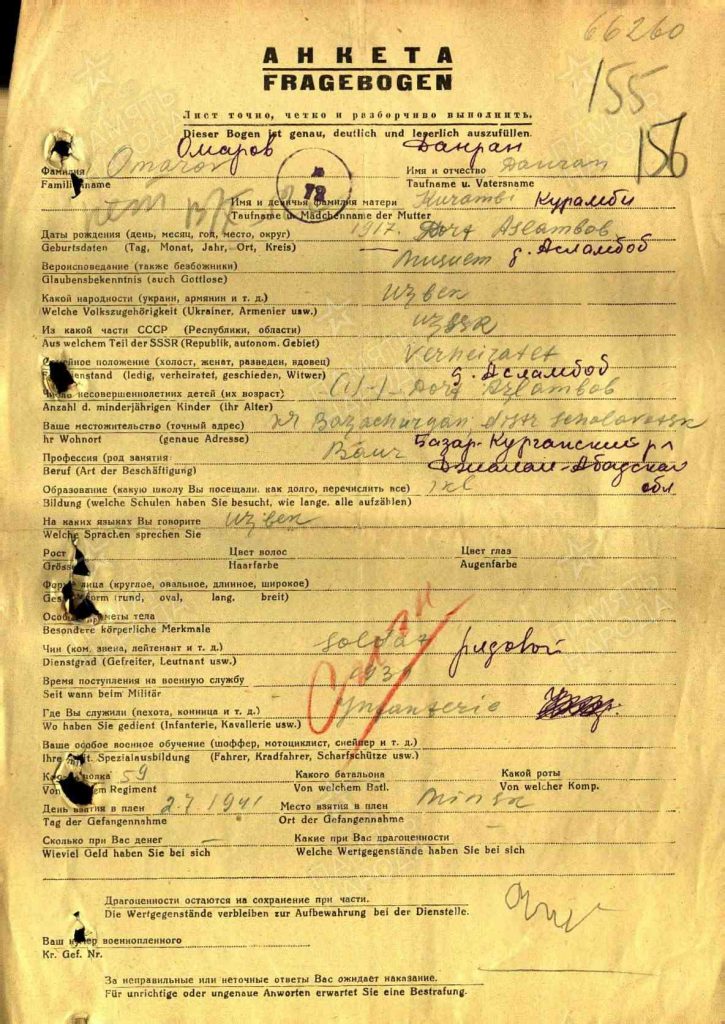 66260
АНКЕТА
FRAGEBOGEN
155
156
Лист точно, четко и разборчиво выполнить.
Dieser Bogen ist genau, deutlich und leserlich auszufüllen.
Омаров
Фамилия Omarov Имя и отчество
Familienname Taufname u. Vatersname
12
Имя и девичья фамилия матери Kurambi Курамби
Taufname u. Mädchenname der Mutter
Даты рождения (день, месяц, год, место, округ) 1917. Aslambob
Geburtsdaten (Tag, Monat, Jahr, Ort, Kreis) д. Асламбоб
Вероисповедание (также безбожники)
Glaubensbekenntnis (auch Gottlose)
Какой народности (украин, армянин и т. д.) Uzbek
Welche Volkszugehörigkeit (Ukrainer, Armenier usw.)
Из какой части СССР (Республики, области) UzSSR
Aus welchem Teil der SSSR (Republik, autonom. Gebiet)
положение (холост, женат, разведен, вдовец) Verheiratet
(ledig, verheiratet, geschieden, Witwer) д. Асламбоб
Число несовершеннолетних детей (их возраст) Aslambob
Anzahl d. minderjährigen Kinder (Ihr Alter)
Ваше местожительство (точный адрес)
hr Wohnort (genaue Adresse) Базар-Курганский
Профессия (род занятия: Baur
Beruf (Art der Beschäftigung) Джалал-Абадская
Образование (какую школу Вы посещали. как долго, перечислить все) обл
Bildung (welche Schulen haben Sie besucht, wie lange. alle aufzählen)
На каких языках Вы говорите Uzbek
Welche Sprachen sprechen Sie
Рост Цвет волос Цвет глаз
Grösse Haarfarbe Augenfarbe
лица (круглое, овальное, длинное, широкое)
(rund, oval, lang. breit)
тела
Besondere körperliche Merkmale
Чин (ком. звена, лейтенант и т. д.) Soldat рядовой
Dienstgrad (Gefreiter, Leutnant usw.)
Время поступления на военную службу
Seit wann beim Militär
Где Вы служили (пехота, конница и т. д.) Infanterie
Wo haben Sie gedient (Infanterie, Kavallerie usw.)
Ваше особое военное обучение (шоффер, мотоциклист, снейпер и т. д.)
Spezialausbildung (Fahrer, Kradfahrer, Scharfschütze usw.)
полка 59 Какого батальона Какой роты
Regiment Von welchem Batl. Von welcher Komp.
День взятия в плен 2.7 1941 Место взятия в плен Minsk
Tag der Gefangennahme Ort der Gefangennahme
Сколько при Вас денег – Какие при Вас драгоценности –
Wieviel Geld haben Sie bei sich Welche Wertgegenstände haben Sie bei sich
Драгоценности остаются на сохранение при части.
Die Wertgegenstände verbleiben zur Aufbewahrung bei der Dienstelle.
Ваш номер военнопленного
Kr. Gef. Nr.
За неправильные или неточные ответы Вас ожидает наказание.
Für unrichtige oder ungenaue Anworten erwartet Sie eine Bestrafung.